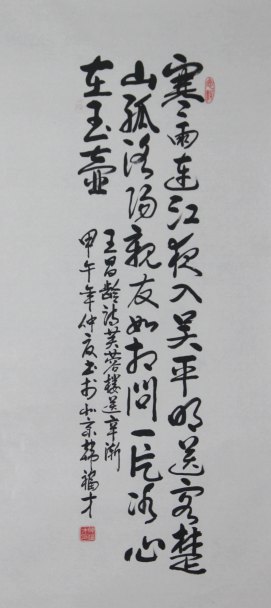 寒雨连江夜入吴平明送客楚
山孤洛阳亲友如相问一片冰心
在玉壶
王昌龄诗芙蓉楼送辛渐
甲午年仲夏书于北京韩福才